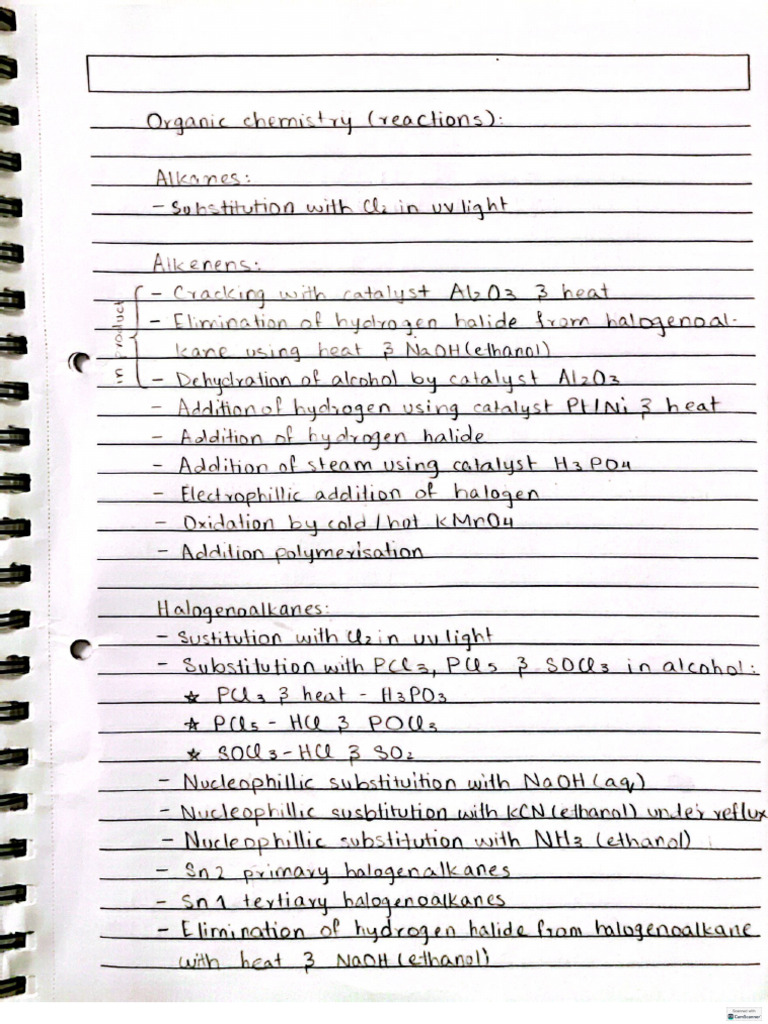 Organic chemistry (reactions):
Alkanes:
- Substitution with Cl₂ in uv light
Alkenens:
- Cracking with catalyst Al₂O₃ & heat
- Elimination of hydrogen halide from halogenoal-
kane using heat & NaOH(ethanol)
- Dehydration of alcohol by catalyst Al₂O₃
product
- Addition of hydrogen using catalyst Pt/Ni & heat
- Addition of hydrogen halide
- Addition of steam using catalyst H₃PO₄
- Electrophillic addition of halogen
- Oxidation by cold/hot KMnO₄
- Addition polymerisation
Halogenoalkanes:
- Sustitution with Cl₂ in uv light
- Substitution with PCl₃, PCl₅ & SOCl₃ in alcohol:
☆ PCl₃ & heat - H₃PO₃
☆ PCl₅ - HCl & POCl₃
☆ SOCl₃ - HCl & SO₂
- Nucleophillic substituition with NaOH(aq)
- Nucleophillic susbtitution with KCN(ethanol) under reflux
- Nucleophillic substitution with NH₃ (ethanol)
- Sn2 primary halogenalkanes
- Sn1 tertiary halogenoalkanes
- Elimination of hydrogen halide from halogenoalkane
with heat & NaOH(ethanol)
Scanned with
CamScanner